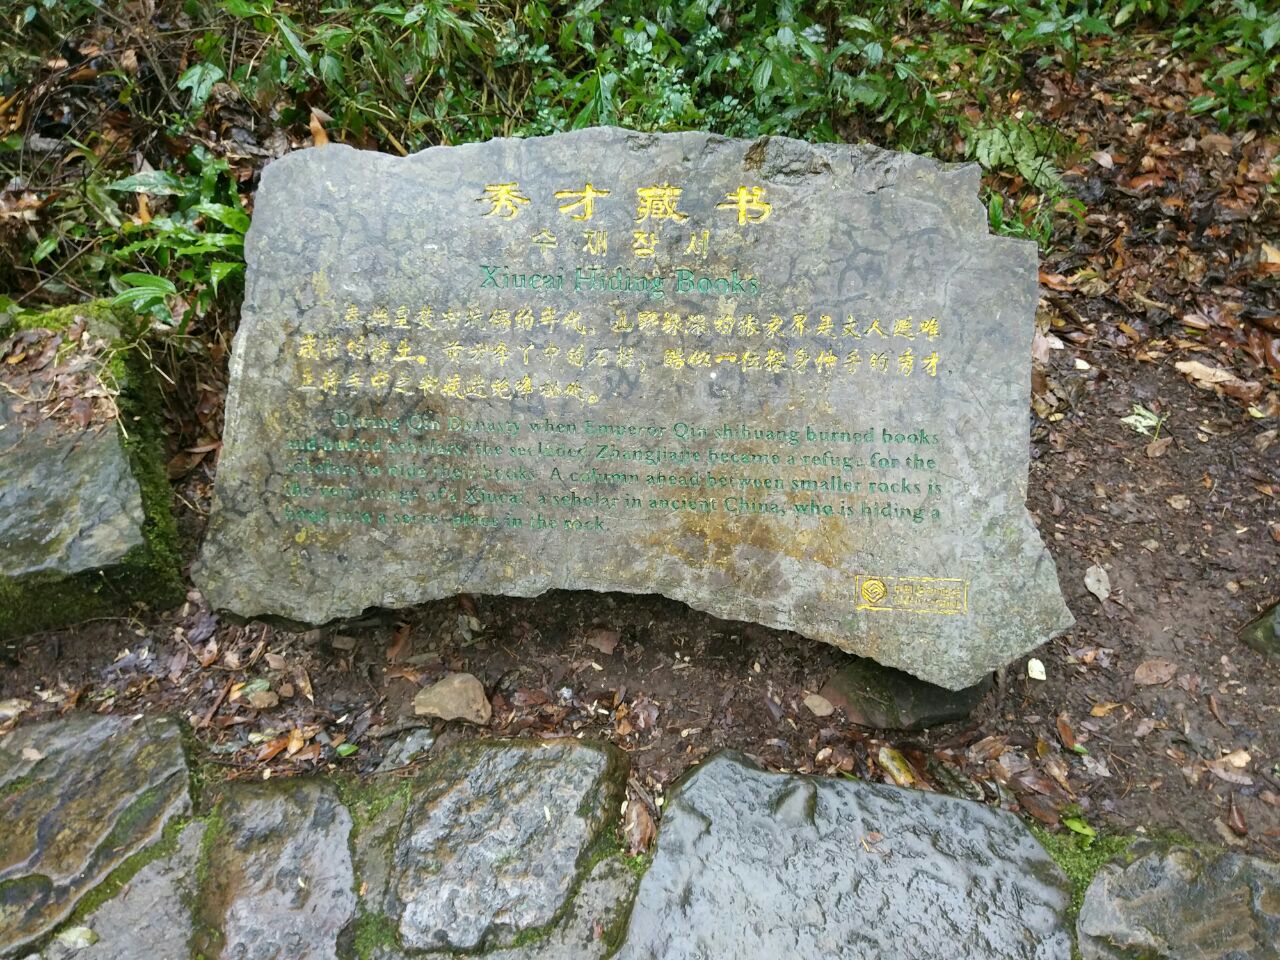 秀才藏书
수재장서
Xiucai Hiding Books
秦始皇焚书坑儒的年代，山野林深的张家界是文人避难
藏书的
上将手中之书藏进绝峰秘处。
During Qin Dynasty when Emperor Qin shihuang burned books
and buried scholars, the secluded Zhangjiajie became a refuge for the
scholars to hide their books. A column ahead between smaller rocks is
the very image of a Xiucai, a scholar in ancient China, who is hiding a
book into a secret place in the rock.